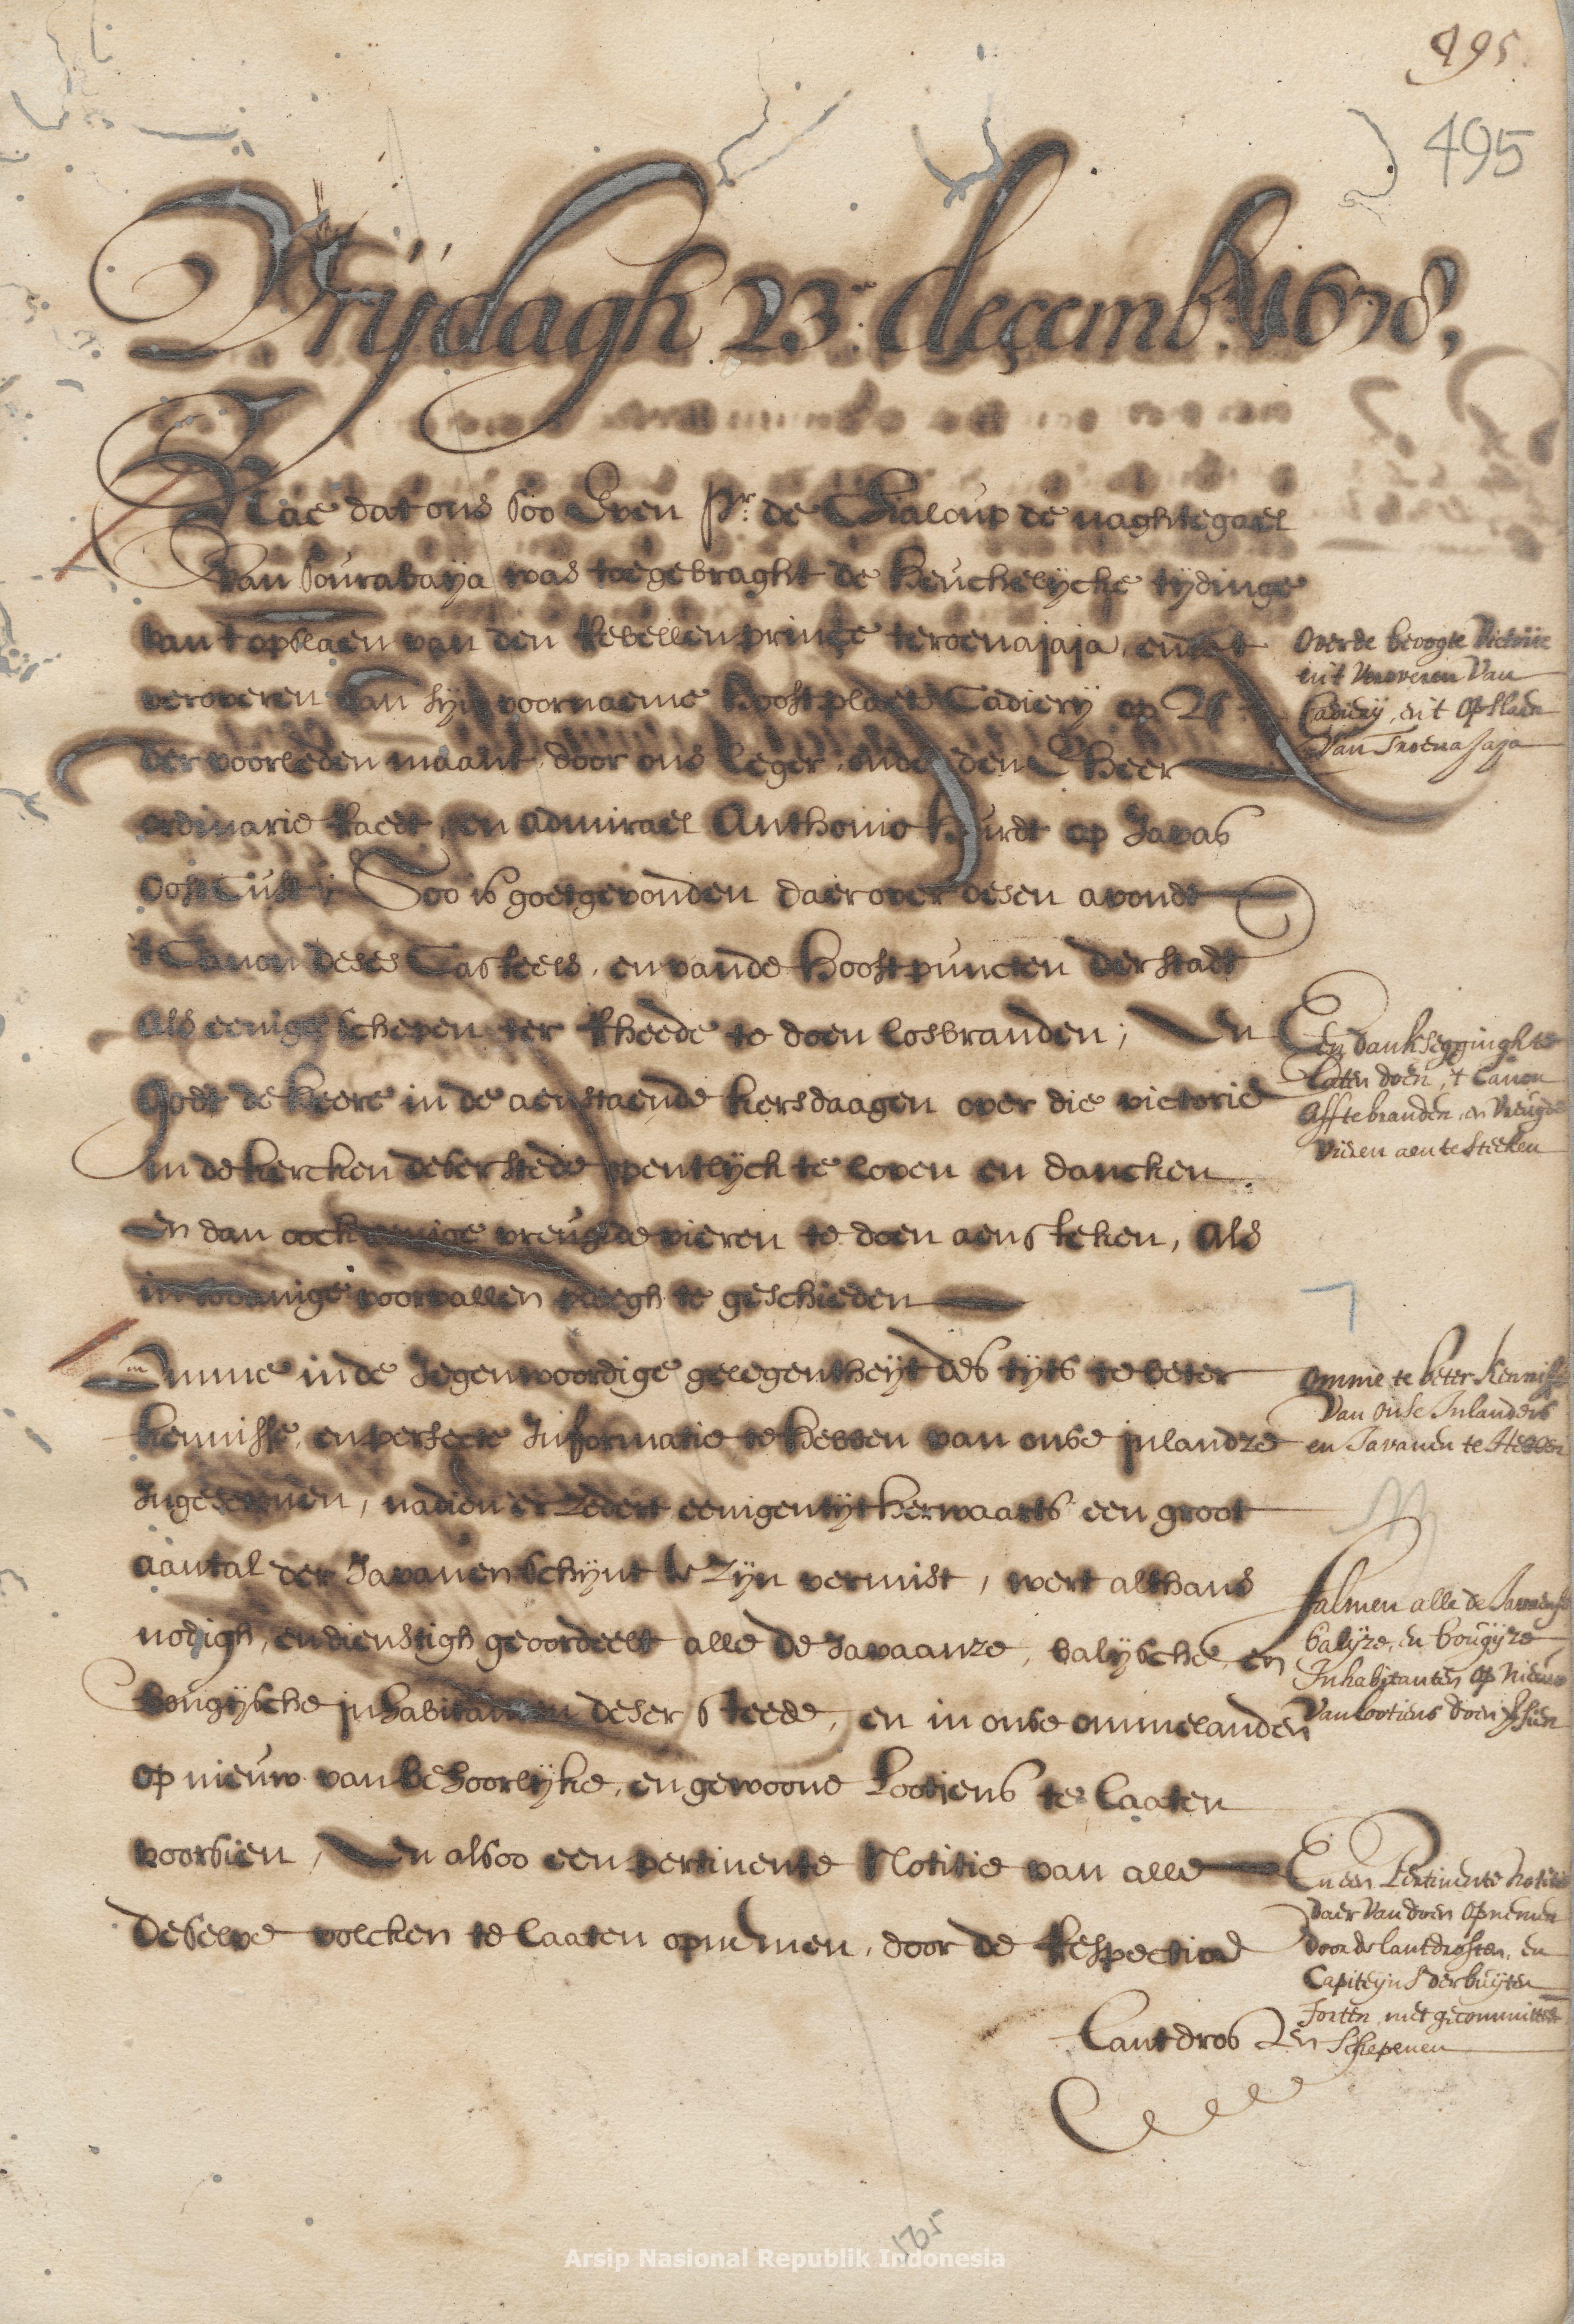 495
495
Vrijdagh 23: decemb: 1678,
Nae dat ons soo even pr. de Chialoup de naghtegael
van Sourabaya was toegebraght de heuchelijcke tijdinge
van 't opslaen van den Rebellen prince teroenajaja, en het
veroveren van sijn voornaeme hooftplaets Cadierij op 26
der voorleden maant, door ons leger, onder den Heer
ordinaris Raedt, en admirael Anthonio Hurdt op Javas
Oost Cust; Soo is goetgevonden daer over desen avondt
't Canon deses Casteels, en vande hooftpuncten der stadt
als eenige schepen ter Rheede te doen losbranden; En
Godt de heere in de aenstaende kersdaagen over die victorie
in de kercken deser stede opentlijck te loven en dancken.
En dan oock eenige vreughde vieren te doen aensteken, als
in soodanige voorvallen pleegh te geschieden
Omme inde Jegenwoordige gelegentheijt des tijts te beter
kennisse, en perfecte Informatie te hebben van onse inlandze
Ingesetenen, nadien er zedert eenigen tijt herwaarts een groot
aantal der Javanen schijnt te zijn vermist, wert althans
nodigh, en dienstigh geoordeelt alle de Javaanze, balijsche, en
bougijsche inhabitanten deser steede, en in onse ommelanden
op nieuw van behoorlijke, en gewoone Lootjens te laaten
voorsien, En alsoo een pertinente Notitie van alle
deselve volcken te laaten opnemen, door de Respective
Lantdros
Over de bevogte Victorie
in't Veroveren Van
Cadierij, en 't Opslaen
Van Troenajaja
Een danksegginghte
Laten doen, 't Canon
Aff te branden, en Vreugde
Vieren aen te steeken
Omme te beter kennisse
Van onse Inlanders
en Javanen te Hebben
Salmen alle de Javaense
balijze, en bougijze
Inhabitanten Op Nieuw
Van lootiens doen
En een Pertinente Notitie
daer Van doen Opnemen
door de lantdrosten, en
Capiteijns der buijten
Forten, met gecommitteerde
en Schepenen
165
Arsip Nasional Republik Indonesia